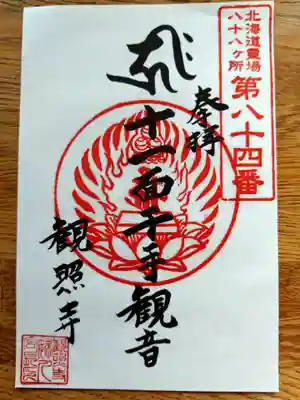 北海道霊場
八十八ヶ所
第八十四番
奉拝
十一面千手観音
観照寺